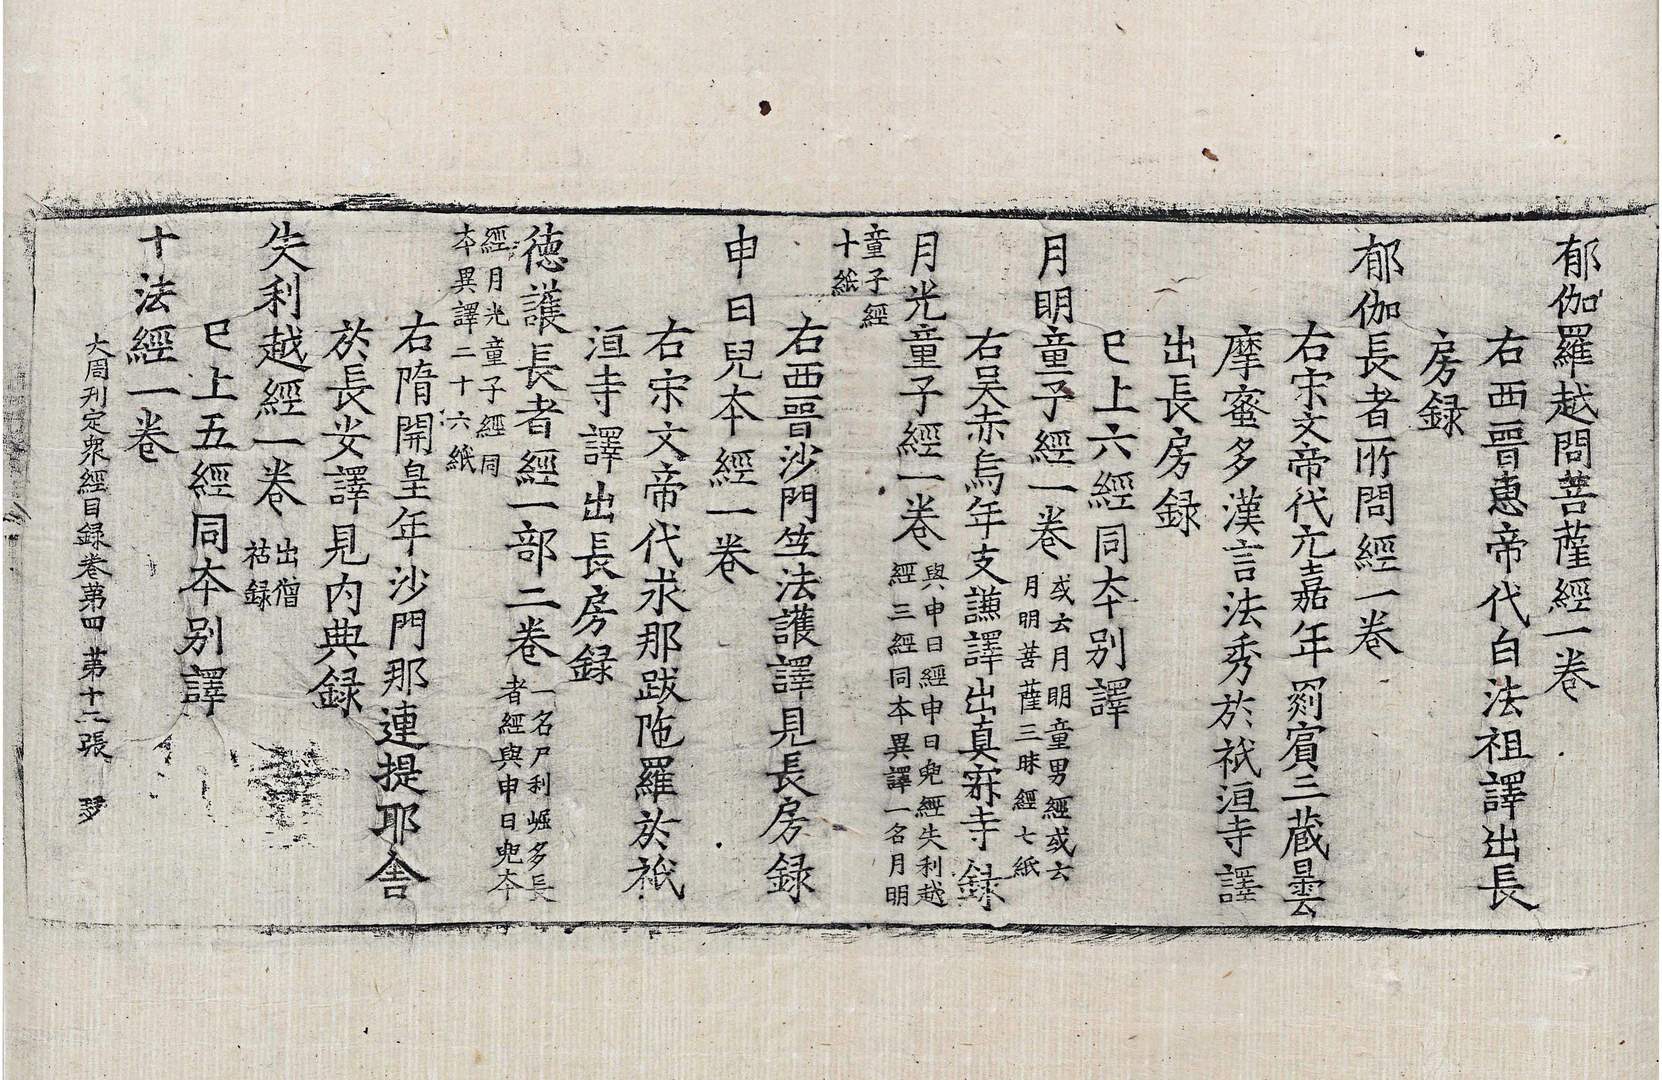 郁伽羅越問菩薩經一卷
右西晉惠帝代白法祖譯出長
房録
郁伽長者所問經一卷
右宋文帝代元嘉年罽賓三蔵曇
摩蜜多漢言法秀於祇洹寺譯
出長房録
已上六經同夲别譯
月明童子經一卷
或云月明童男經或云
月明菩薩三昧經七紙
右吴赤烏年支謙譯出真寂寺録
月光童子經一卷
與申日經申日兜經失利越
經三經同本異譯一名月明
童子經
十紙
右西晉沙門竺法護譯見長房録
申日兒夲經一卷
右宋文帝代求那跋陁羅於祇
洹寺譯出長房録
徳護長者經一部二卷
一名尸利崛多長
者經與申日兜夲
經月光童子經同
夲異譯二十六紙
右隋開皇年沙門那連提耶舎
於長安譯見内典録
失利越經一卷
出僧
祐録
已上五經同夲别譯
十法經一卷
大周刋定衆經目録卷苐四 苐十二張